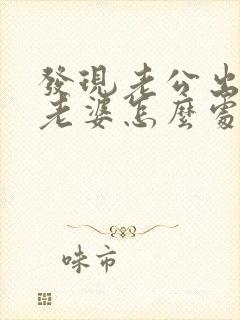 發現老公出
老婆怎麼處
味市